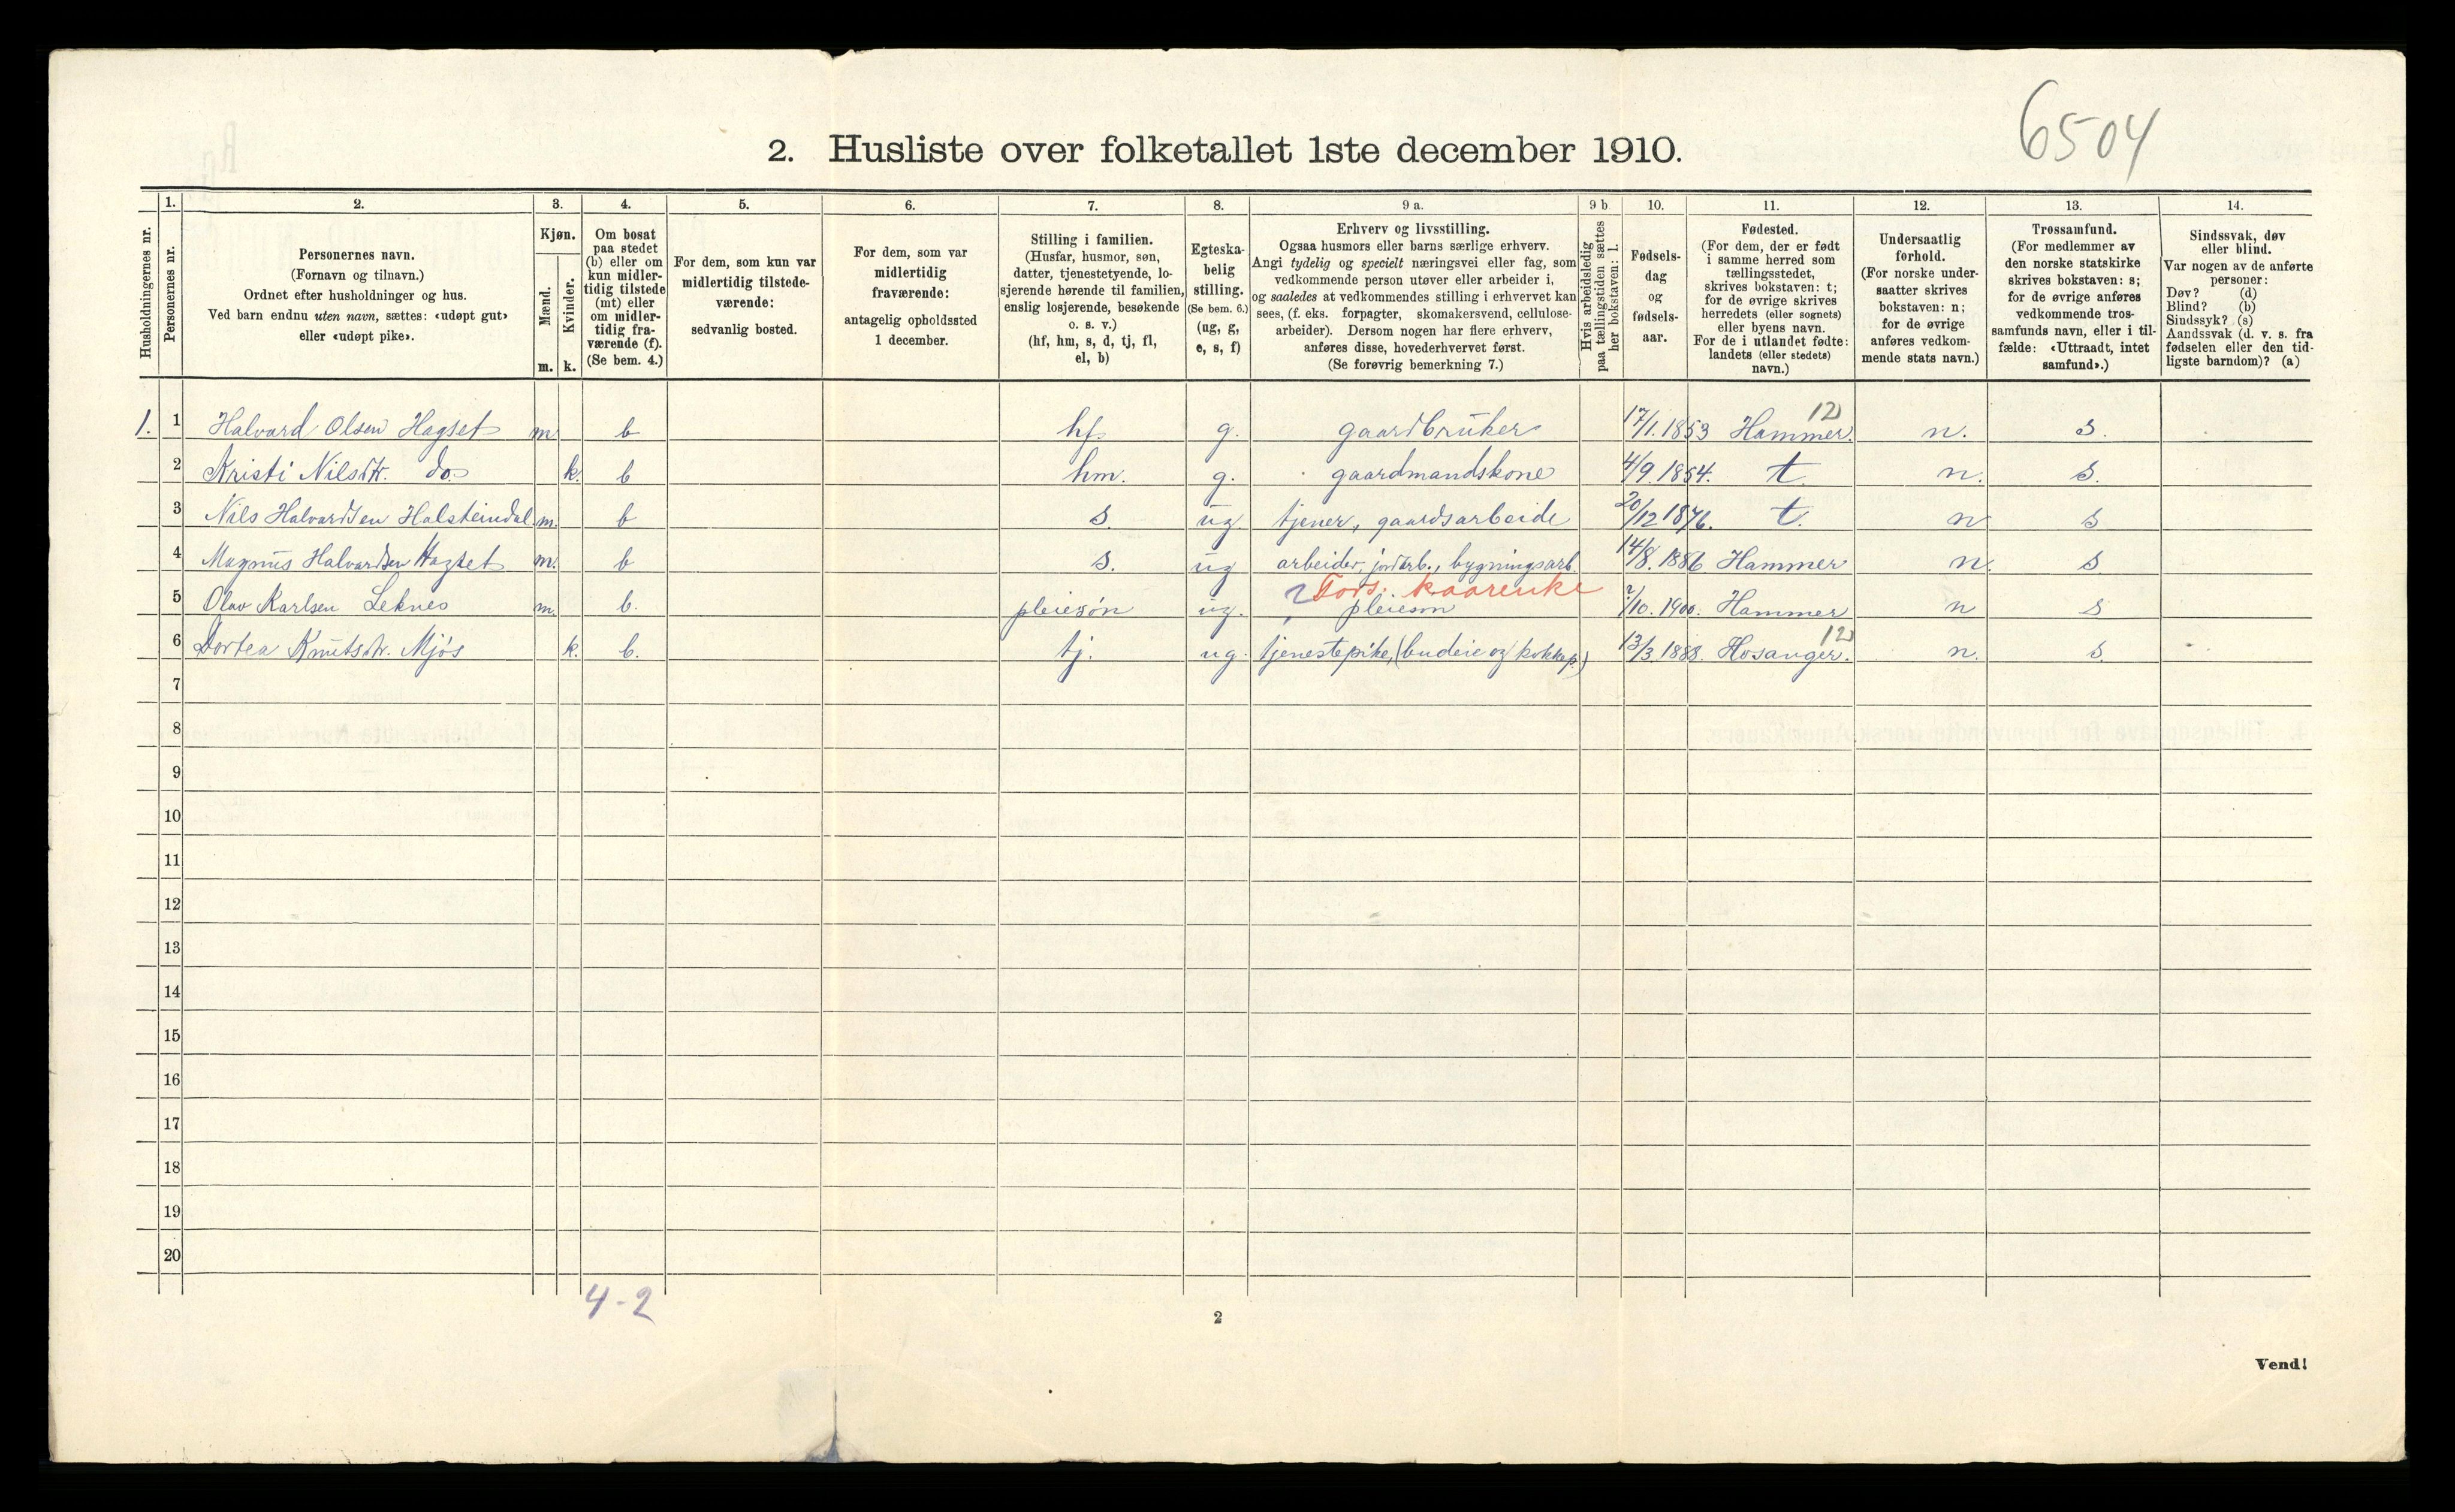 6504
2. Husliste over folketallet 1ste december 1910.
Husholdningernes nr.
1.
Personernes nr.
2.
Personernes navn.
(Fornavn og tilnavn.)
Ordnet efter husholdninger og hus.
Ved barn endnu uten navn, sættes: «udøpt gut»
eller «udøpt pike».
3.
Kjøn.
Mænd.
m.
Kvinder.
k.
4.
Om bosat
paa stedet
(b) eller om
kun midler-
tidig tilstede
(mt) eller
om midler-
tidig fra-
værende (f).
(Se bem. 4.)
5.
For dem, som kun var
midlertidig tilstede-
værende:
sedvanlig bosted.
6.
For dem, som var
midlertidig
fraværende:
antagelig opholdssted
1 december.
7.
Stilling i familien.
(Husfar, husmor, søn,
datter, tjenestetyende, lo-
sjerende hørende til familien,
enslig losjerende, besøkende
o. s. v.)
(hf, hm, s, d, tj, fl,
el, b)
8.
Egteska-
belig
stilling.
(Se bem. 6.)
(ug, g,
e, s, f)
9 a.
Erhverv og livsstilling.
Ogsaa husmors eller barns særlige erhverv.
Angi tydelig og specielt næringsvei eller fag, som
vedkommende person utøver eller arbeider i,
og saaledes at vedkommendes stilling i erhvervet kan
sees, (f. eks. forpagter, skomakersvend, cellulose-
arbeider). Dersom nogen har flere erhverv,
anføres disse, hovederhvervet først.
(Se forøvrig bemerkning 7.)
9 b.
Hvis arbeidsledig
paa tællingstiden sættes
her bokstaven: l.
10.
Fødsels-
dag
og
fødsels-
aar.
11.
Fødested.
(For dem, der er født
i samme herred som
tællingsstedet,
skrives bokstaven: t;
for de øvrige skrives
herredets (eller sognets)
eller byens navn.
For de i utlandet fødte:
landets (eller stedets)
navn.)
12.
Undersaatlig
forhold.
(For norske under-
saatter skrives
bokstaven: n;
for de øvrige
anføres vedkom-
mende stats navn.)
13.
Trossamfund.
(For medlemmer av
den norske statskirke
skrives bokstaven: s;
for de øvrige anføres
vedkommende tros-
samfunds navn, eller i til-
fælde: «Uttraadt, intet
samfund».)
14.
Sindssvak, døv
eller blind.
Var nogen av de anførte
personer:
Døv? (d)
Blind? (b)
Sindssyk? (s)
Aandssvak (d. v. s. fra
fødselen eller den tid-
ligste barndom)? (a)
12
1. 1 Halvard Olsen Hagset m. b hf. g. gaardbruker 17/1. 1853 Hammer. n. s.
2 Kristi Nilsdtr. do k. b hm. g. gaardmandskone 4/9. 1854. t. n. s.
3 Nils Halvardsen Halsteindal m. b s. ug tjener, gaardsarbeide 20/12 1876. t. n s
4 Magnus Halvardsen Hagset m. b s. ug arbeider, jordarb., bygningsarb. 14/8. 1886 Hammer n. s
Fors. kaarenke
5 Olav Karlsen Leknes m. b. pleiesøn ug. pleiesøn /10. 1900. Hammer n s
12
6 Dortea Knutsdtr. Mjøs k. b. tj. ug. tjenestepike, (budeie og kokkep.) 13/3. 1888. Hosanger. n. s.
7
8
9
10
11
12
13
14
15
16
17
18
19
20
4-2
2
Vend!